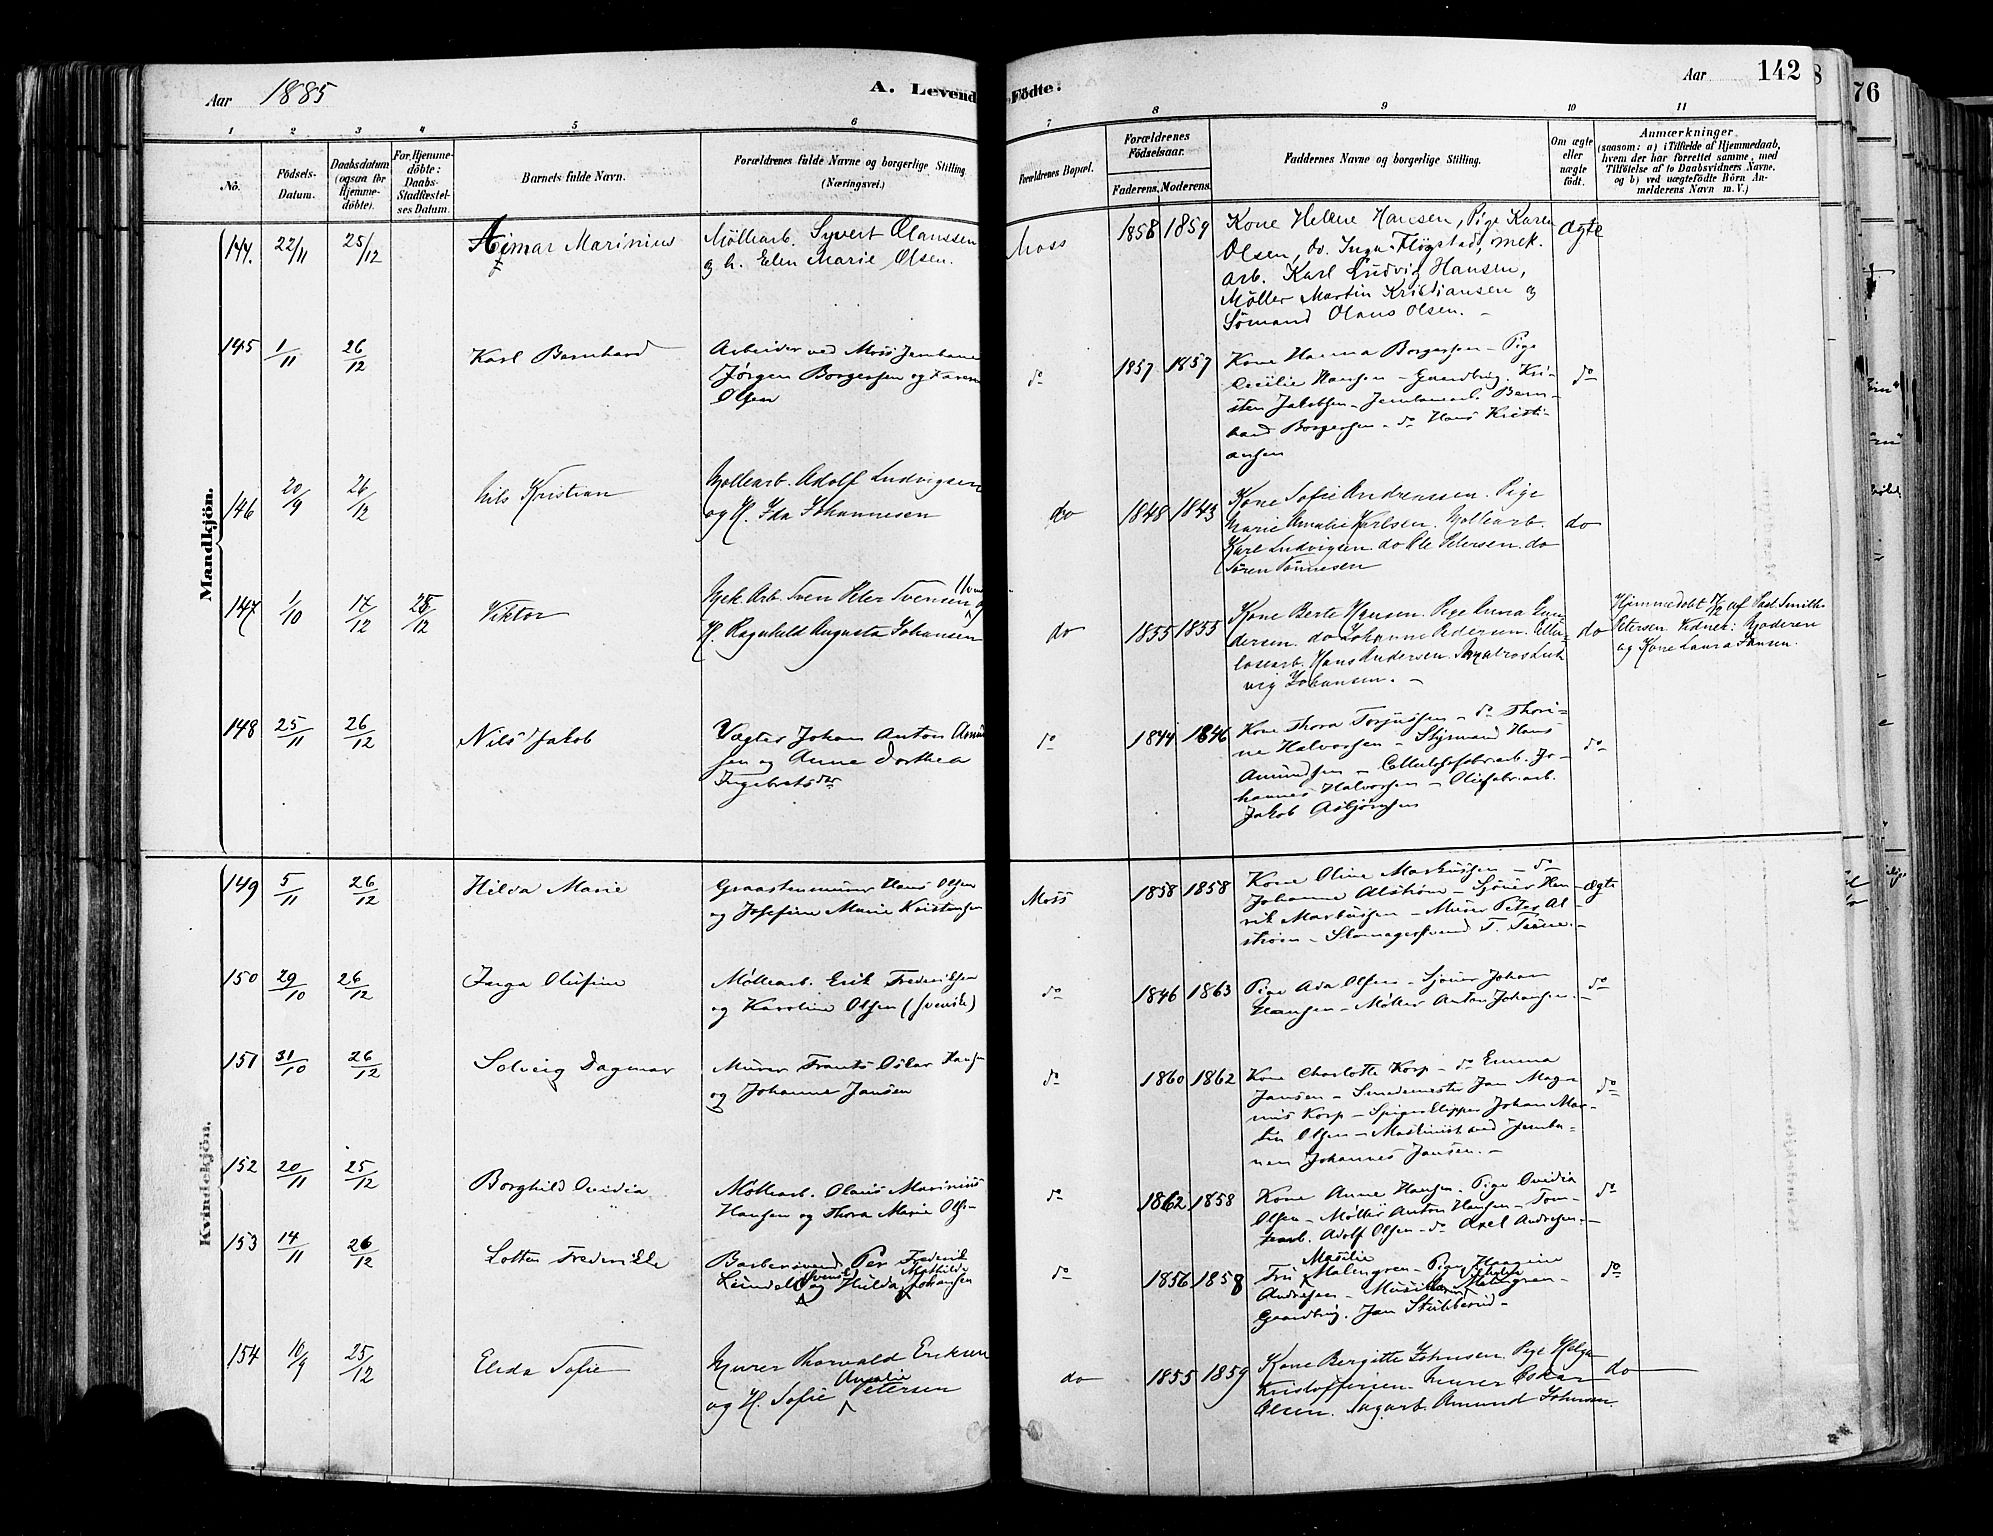 Aar 1885
A. Levend
Födte.
Aar
142
8
76
1
2
3
4
5
6
7
8
9
10
11
No.
Födsels-
Datum.
Daabsdatum
(ogsaa for
Hjemme-
döbte).
For Hjemme-
döbte:
Daabs-
Stadfæstel-
ses Datum
Barnets fulde Navn.
Forældrenes fulde Navne og borgerlige Stilling
(Næringsvei.)
Forældrenes Bopæl.
Forældrenes
Födselsaar.
Faderens. Moderens.
Faddernes Navne og borgerlige Stilling.
Om ægte
eller
uægte
födt.
Anmærkninger
(saasom: a) i Tilfælde af Hjemmedaab,
hvem der har forrettet samme, med
Tilföielse af to Daabsvidners Navne.
og b) ved uægtefödte Börn An-
melderens Navn m. V.)
Mandkjön.
144. 22/11 25/12 Marinius
Møllearb. Syvert Olanssen
og h. Elen Marie Olsen.
Moss 1858 1859
Kone Helene Hansen, Pige Karen
Olsen, do. Inga Fløgstad, mek.
arb. Karl Ludvig Hansen,
Møller Martin Kristiansen og
Sømand Olaus Olsen. –
ægte
145 1/11 26/12 Karl Bernhard
Arbeider ved Moss Jernbane
Jørgen Borgersen og Karen
Olsen
do 1857 1857
Kone Hanna Borgersen – Pige
Cecilie Hansen – Gaardbrug. Kri-
sten Jakobsen – Jernbanearb. Bern-
hard Borgersen – do Hans Kristi-
ansen
do
146 20/9 26/12 Nils Kristian
Møllearb. Adolf Ludvigsen
og H. Ida Johannesen
do 1848 1843
Kone Sofie Andreassen. Pige
Marie Amalie Karlsen. Møllearb.
Karl Ludvigsen do Ole Petersen. do
Søren Tønnesen
do
147 1/10 17/12 25/12 Viktor
Mek. Arb. Sven Peter Svensen
H. Ragnhild Augusta Johansen
do 1855 1855
Kone Berte Hansen. Pige Anna Gun-
dersen. do Johanne Pedersen. Cellu-
losearb. Hans Andersen. Lud-
vig Johansen. –
do
Hjemmedøbt 17/12 af Past. Smith-
Petersen Vidner: Moderen
og Kone Laura Hansen.
148 25/11 26/12 Nils Jakob
Vægter Johan Anton Amund-
sen og Anne Dorthea
Ingebretsdr
do 1844 1846
Kone Thora Torjussen – do Thori-
ne Halvorsen – Styrmand Hans
Amundsen – Cellulosefabr.arb. Jo-
hannes Halvorsen – Oliefabr.arb.
Jakob Asbjørnsen
do
Kvindekjön.
149 5/11 26/12 Hilda Marie
Graastensmurer Hans Olsen
og Josefine Marie Kristensen
Moss 1858 1858
Kone Oline Markussen – do
Johanne Alstrøm – Sjouer Hen-
rik Markussen – Murer Peter Al-
strøm – Skomagersvend T.
ægte
150 29/10 26/12 Inga Olufine
Møllearb. Erik Frederiksen
og Karoline Olsen (svensk)
do 1846 1863
Pige Ada Olsen – Sjouer Johan
Hansen – Møller Anton Johansen.
do
151 31/10 26/12 Solveig Dagmar
Murer Frants Oskar Hansen
og Johanne Jansen
do 1860 1862
Kone Charlotte Korp – do Emma
Jansen – Smedemester Jan Mag-
nus Korp – Spigerklipper Johan Mar-
tin Olsen – Maskinist ved Jernba-
nen Johannes Jansen. –
do
152 20/11 25/12 Borghild Ovidia
Møllearb. Olaus Marinius
Hansen og Thora Marie Olsen
do 1862 1858
Kone Anne Hansen. Pige Ovidia
Olsen – Møller Anton Hansen – Tom-
tearb. Adolf Olsen – do Axel Andresen. –
do
153 14/11 26/12 Lotten Frederikke
Barbersvend Per Frederik
Lundell (svensk) og Hulda Mathilde Johansen
do 1856 1858
Fru Malmgren – Pige
Andresen – Malmgren –
Gaardbrug. Jan Stubberud –
do
154 10/9 25/12 Elida Sofie
Murer Thorvald Eriksen
og H. Sofie Amalie Petersen
do 1855 1859
Kone Bergitte Johnsen. Pige Helga
Kristoffersen. Murer Oskar
Olsen. Sagarb. Amund Johnsen.
do